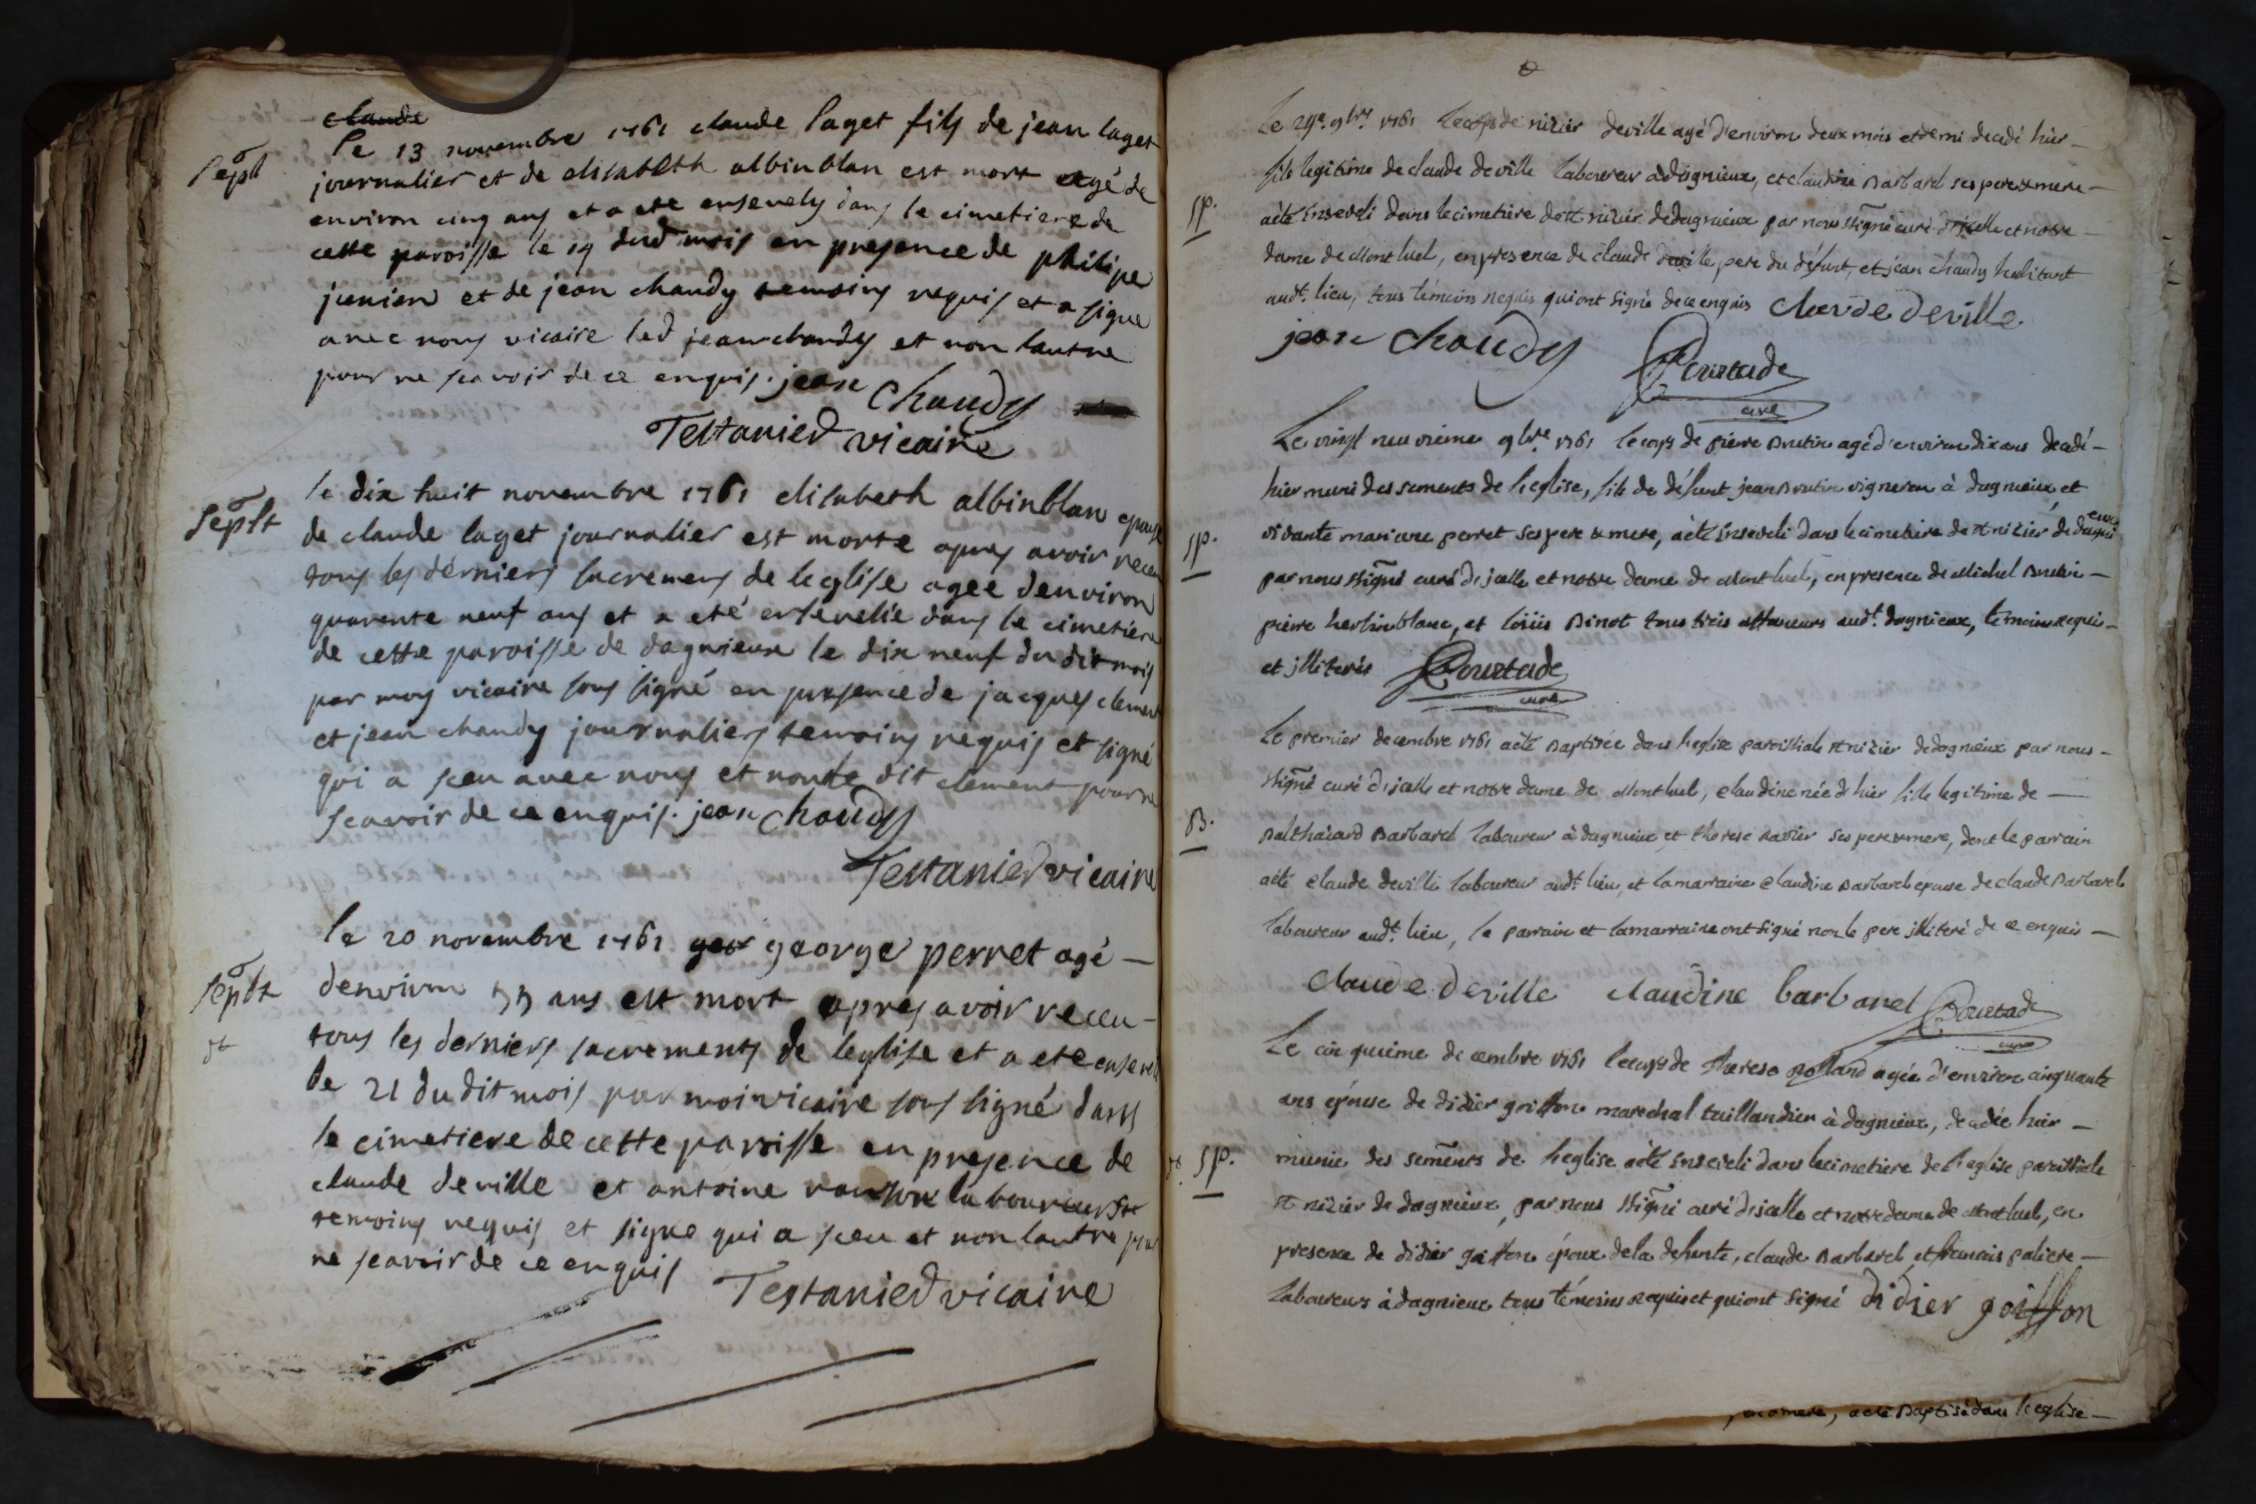 claude
le 13 novembre 1761 claude laget fils de jean laget
journalier et de elisabeth albinblan est mort agé de
environ cinq ans et a ete ensevely dans le cimetiere de
cette paroisse le 14 dud mois en presence de philipe
junien et de jean chaudy temoins requis et a signe
avec nous vicaire led jean chaudy et non lautre
pour ne scavoir de ce enquis. jean chaudy
Testanied vicaire
Sepult
le dix huit novembre 1761 elisabeth albinblan epouse
de claude laget journalier est morte apres avoir receu
tous les derniers sacremens de leglise agee denviron
quarente neuf ans et a eté ensevelie dans le cimetiere
de cette paroisse de dagnieux le dix neuf du dit mois
par moy vicaire sous signé en presence de jacques clement
et jean chaudy journaliers temoins requis et signé
qui a sceu avec nous et non le dit clement pour ne
scavoir de ce enquis. jean chaudy
Testanied vicaire
Seplt
le 20 novembre 1761 george perret agé —
denviron 55 ans est mort apres avoir receu —
tous les derniers sacrements de leglise et a ete enseveli
le 21 du dit mois par moi vicaire sous signé dans
le cimetiere de cette paroisse en presence de
claude deville et antoine laboureurs
temoins requis et signe qui a sceu et non lautre pour
ne scavoir de ce enquis Testanied vicaire
Seplt
Le 29e. 9bre 1761 le corps de nizier deville agé d'environ deux mois et demi decedé hier —
fils legitime de claude deville laboureur à dagnieux, et claudine Barbarel ses pere & mere —
sp.
a été Enseveli dans le cimetiere de st nizier de dagnieux par nous ssigné curé d'icelle et notre —
dame de Montluel, en presence de claude deville pere du défunt, et jean chaudy habitant
audt. lieu, tous témoins requis qui ont signé de ce enquis claude deville
jean chaudy
Courtade
curé
Le vingt neuvieme 9bre 1761 le corps de pierre Brutin agé d'environ dix ans decedé —
hier muni des sements de l'eglise, fils de défunt jean Brutin vigneron à dagnieux, et
sp.
vivante mariane perret ses pere & mere, a été Enseveli dans le cimetiere de st nizier de dagnieux
par nous ssigné curé d'icelle et notre dame de Montluel, en presence de Michel Brutin —
pierre herbinblanc, et loüis Binot tous trois audt. dagnieux, témoins requis —
et jlliterés Courtade
curé
Le premier decembre 1761 a été Baptisée dans l'eglise paroissiale st nizier de dagnieux par nous —
ssigné curé d'icelle et notre dame de Montluel, claudine née d'hier fille legitime de —
B.
Balthazard Barbarel laboureur à dagnieux et therese ses pere & mere, dont le parrain
a été claude deville laboureur audt. lieu, et la marraine claudine Barbarel épouse de claude Barbarel
laboureur audt. lieu, le parrain et la marraine ont signé non le pere jlliteré de ce enquis —
claude deville claudine barbarel Courtade
curé
Le cinquieme decembre 1761 le corps de therese Rolland agée d'environ cinquante
ans épouse de didier goiffon marechal taillandier à dagnieux, decedée hier —
sp.
munie des sements de l'eglise a été Enseveli dans le cimetiere de l'eglise paroissiale
st nizier de dagnieux, par nous ssigné curé d'icelle et notre dame de Montluel, en
presence de didier goiffon époux de la defunte, claude Barbarel, et francois paliere —
laboureurs à dagnieux tous témoins requis et qui ont signé didier goiffon
, a été Baptisé dans l'eglise —